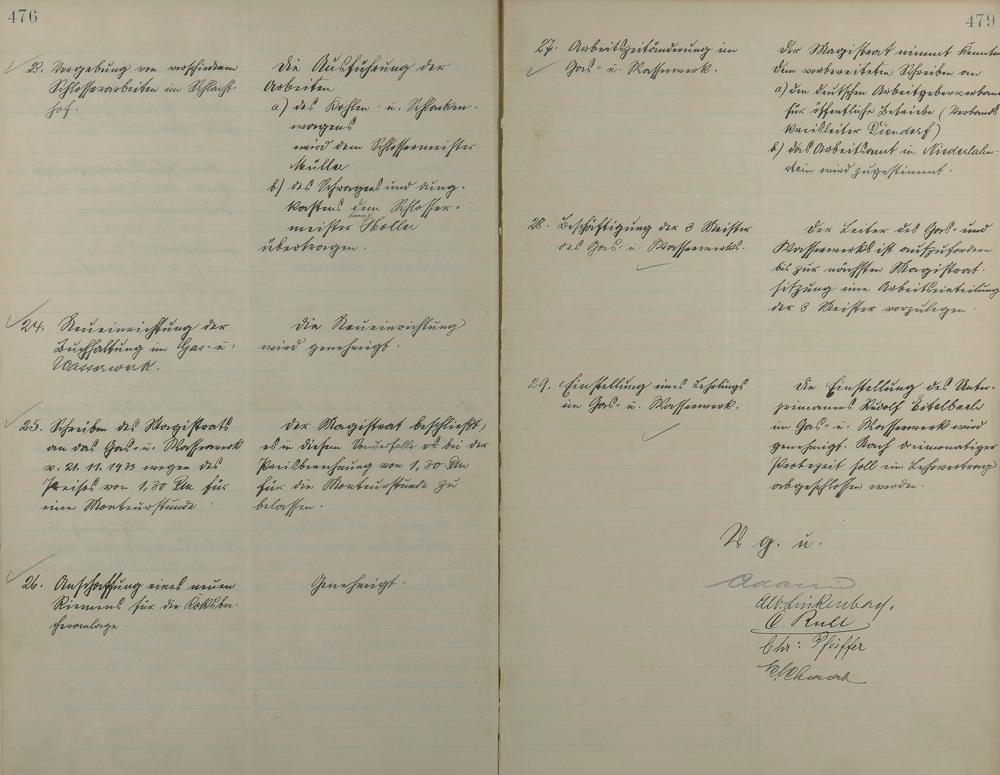 476
23. Vergebung von verschiedenen
Schlosserarbeiten im Schlacht-
hof.
Die Ausführung der
Arbeiten
a) des Kohlen- u. Schlacken-
wagens
wird dem Schlossermeister
Müller
b) des Schragens und Dung-
kastens dem Schlosser-
meister Noller
übertragen.
24. Neueinrichtung der
Buchhaltung im Gas- u.
Wasserwerk.
Die Neueinrichtung
wird genehmigt.
25. Schreiben des Magistrats
an das Gas- u. Wasserwerk
v. 21.11.1933 wegen des
Preises von 1,30 Rm für
eine Monteurstunde
Der Magistrat beschließt,
es in diesem Sonderfalle es bei der
Preisberechnung von 1,30 Rm
für die Monteurstunde zu
belassen.
26. Anschaffung eines neuen
Riemens für die Koksbre-
cheranlage.
Genehmigt.
479
27. Arbeitszeitänderung im
Gas- u. Wasserwerk.
Der Magistrat nimmt Kenntn
Dem vorbereiteten Schreiben an
a) den deutschen Arbeitgeberverban
für öffentliche Betriebe (Verbands
kreisleiter Diendorf)
b) das Arbeitsamt in Niederlahn-
stein wird zugestimmt.
28. Beschäftigung der 3 Meister
des Gas- u. Wasserwerks.
Der Leiter des Gas- und
Wasserwerks ist aufzufordern
bis zur nächsten Magistrat-
sitzung eine Arbeitseinteilung
der 3 Meister vorzulegen.
29. Einstellung eines Lehrlings
im Gas- u. Wasserwerk.
Die Einstellung des Unter-
primaners Rudolf
im Gas- u. Wasserwerk wird
genehmigt. Nach dreimonatiger
Probezeit soll ein Lehrvertrag
abgeschlossen werden.
V. g. u.
Alb. Linkenbach,
C. Rull
Chr: Pfeiffer